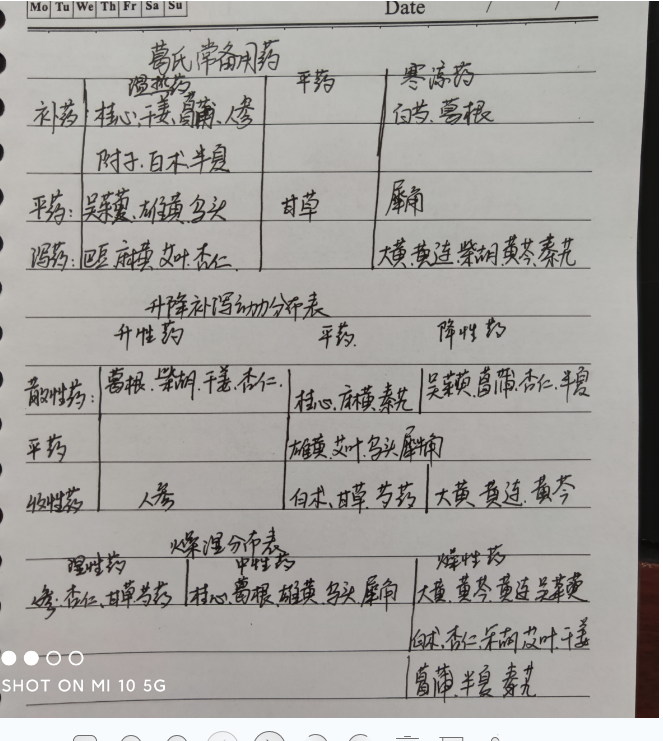 Mo Tu We Th Fr Sa Su
Date / /
葛氏常备用药
温热药 平药 寒凉药
补药 桂心、干姜、菖蒲、人参 白芍、葛根
附子、白术、半夏
平药: 吴茱萸、雄黄、乌头 甘草 犀角
泻药: 巴豆、麻黄、艾叶、杏仁. 大黄、黄连、柴胡、黄芩、秦艽
升降补泻动力分布表
升性药 平药. 降性药
散性药: 葛根、柴胡、干姜、杏仁. 桂心、麻横、秦艽 吴茱萸、菖蒲、杏仁、半夏
平药 雄黄、艾叶、乌头、犀角
收性药 人参 白术、甘草、芍药 大黄、黄连、黄芩
燥湿分布表
湿性药 中性药 燥性药
参、杏仁、甘草、芍药 桂心、葛根、雄黄、乌头、犀角 大黄、黄芩、黄连、吴茱萸
白术、杏仁、柴胡、艾叶、干姜
菖蒲、半夏、秦艽
SHOT ON MI 10 5G